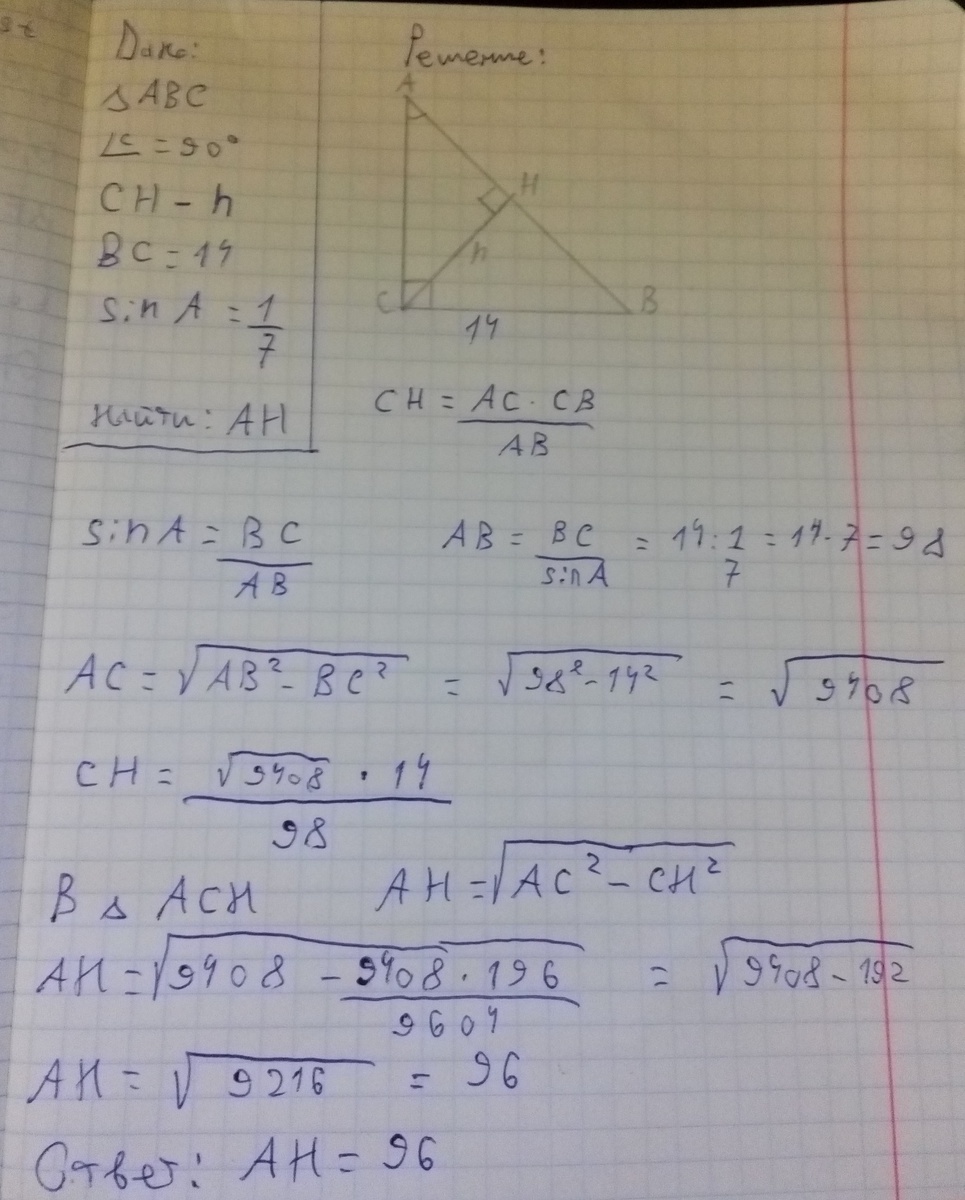 Дано:
△ABC
∠C = 90°
CH – h
BC = 14
sin A = 1/7
Найти: AH
Решение:
A
H
h
C
B
14
CH = AC · CB / AB
sin A = BC / AB
AB = BC / sin A = 14 : 1/7 = 14 · 7 = 98
AC = √(AB² – BC²) = √(98² – 14²) = √9408
CH = √9408 · 14 / 98
В △ ACH AH = √(AC² – CH²)
AH = √(9408 – 9408 · 196 / 9604) = √(9408 – 192)
AH = √9216 = 96
Ответ: AH = 96